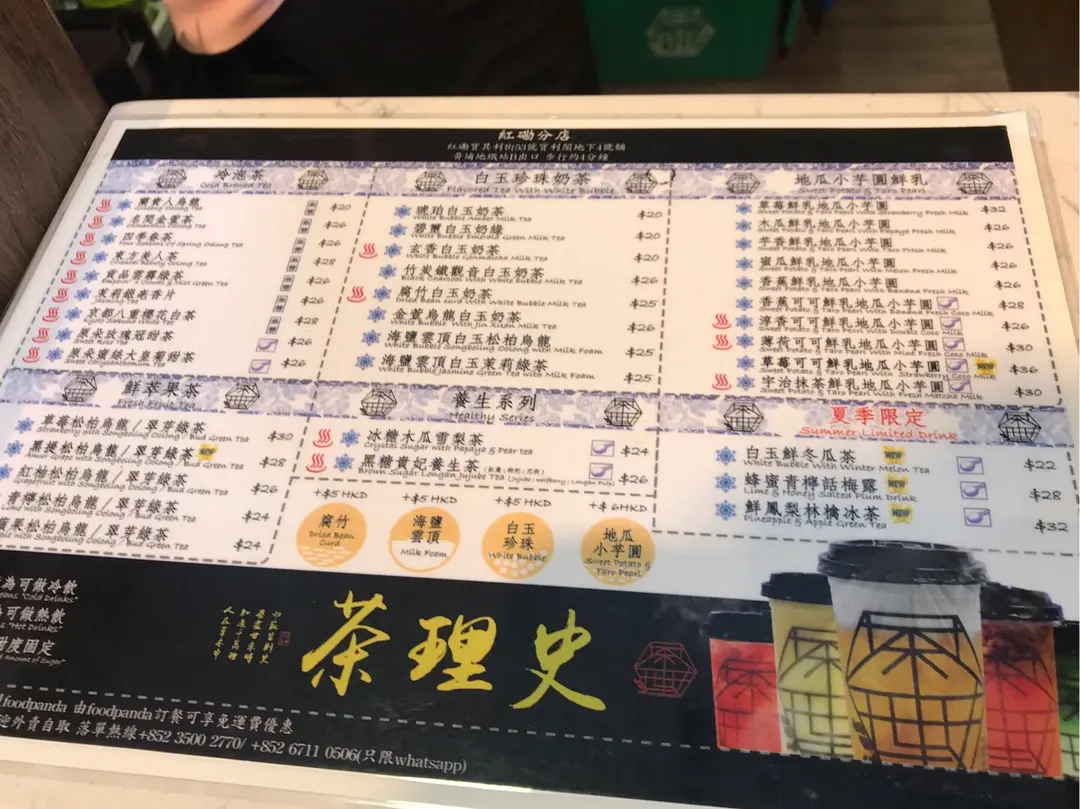 紅磡分店
紅磡寶其利街63號寶利閣地下4號舖
黃埔地鐵站B出口 步行約4分鐘
冷泡茶
Cold Brewed Tea
蘭貴人烏龍
$20
名間金萱茶
$26
四季春茶
Four Seasons of Spring Oolong Tea
$26
東方美人茶
Oriental Beauty Oolong Tea
$28
貢品雲霧綠茶
Emperor's Clouds & Mist Green Tea
$26
茉莉銀毫香片
Jasmine Tea
$26
京都八重櫻花白茶
Kyoto Sakura White Tea
$28
原朵玫瑰冠甜茶
Sweet Rose Tea
$26
原朵蜜綠大皇菊甜茶
Sweet Chrysanthemum Tea
$26
白玉珍珠奶茶
Flavored Tea With White Bubble
琥珀白玉奶茶
White Bubble Amber Milk Tea
$20
碧璽白玉奶綠
White Bubble Emerald Green Milk Tea
$20
玄香白玉奶茶
White Bubble Genmaicha Milk Tea
$20
竹炭鐵觀音白玉奶茶
Black Charcoal With White Bubble Milk Tea
$26
腐竹白玉奶茶
Dried Bean curd With White Bubble Milk Tea
$25
金萱烏龍白玉奶茶
White Bubble With Jin Xuan Milk Tea
$26
海鹽雲頂白玉松柏烏龍
White Bubble Songboling Oolong with Milk Foam
$25
海鹽雲頂白玉茉莉綠茶
White Bubble Jasmine Green Tea with Milk Foam
$25
地瓜小芋圓鮮乳
Sweet Potato & Taro Pearl
草莓鮮乳地瓜小芋圓
Sweet Potato & Taro Pearl With Strawberry Fresh Milk
$32
木瓜鮮乳地瓜小芋圓
Sweet Potato & Taro Pearl With Papaya Fresh Milk
$26
芋香鮮乳地瓜小芋圓
Sweet Potato & Taro Pearl With Taro Fresh Milk
$26
蜜瓜鮮乳地瓜小芋圓
Sweet Potato & Taro Pearl With Melon Fresh Milk
$26
香蕉鮮乳地瓜小芋圓
Sweet Potato & Taro Pearl With Banana Fresh Milk
$26
香蕉可可鮮乳地瓜小芋圓
$28
淳香可可鮮乳地瓜小芋圓
Sweet Potato & Taro Pearl With Double Coco Milk
$26
薄荷可可鮮乳地瓜小芋圓
Sweet Potato & Taro Pearl With Mint Fresh Coco Milk
$30
草莓可可鮮乳地瓜小芋圓 NEW
Sweet Potato & Taro Pearl With Strawberry Coco Milk
$36
宇治抹茶鮮乳地瓜小芋圓
Sweet Potato & Taro Pearl With Fresh Matcha Milk
$30
鮮萃果茶
Fresh Fruit Tea
草莓松柏烏龍/翠芽綠茶
Strawberry with Songboling Oolong / Bud Green Tea
$30
黑提松柏烏龍/翠芽綠茶 NEW
Grape with Songboling Oolong / Bud Green Tea
$28
紅柚松柏烏龍/翠芽綠茶
$26
青檸松柏烏龍/翠芽綠茶
Lime with Songboling Oolong / Bud Green Tea
$24
果松柏烏龍/翠芽綠茶
with Songboling Oolong / Bud Green Tea
$24
養生系列
Healthy Series
冰糖木瓜雪梨茶
Crystal Sugar with Papaya & Pear tea
$24
黑糖貴妃養生茶
Brown Sugar Longan Jujube Tea
$26
夏季限定
Summer Limited Drink
白玉鮮冬瓜茶 NEW
White Bubble With Winter Melon Tea
$22
蜂蜜青檸話梅露 NEW
Lime & Honey Salted Plum Drink
$28
鮮鳳梨林檎冰茶 NEW
Pineapple & Apple Green Tea
$32
+$5 HKD
腐竹
Dried Bean Curd
+$5 HKD
海鹽雲頂
Milk Foam
+$5 HKD
白玉珍珠
White Bubble
+$6HKD
地瓜小芋圓
Sweet Potato & Taro Pearl
為可做冷飲
"Cold Drinks"
可做熱飲
"Hot Drinks"
甜度固定
Amount of Sugar"
茶理史
foodpanda 由foodpanda訂餐可享免運費優惠
外賣自取 落單熱線+852 3500 2770/ +852 6711 0506(只限whatsapp)